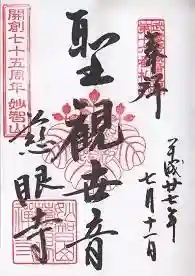 奉拝
平成廿七年
七月十一日
聖観世音
慈眼寺
開創七十五周年 妙智山